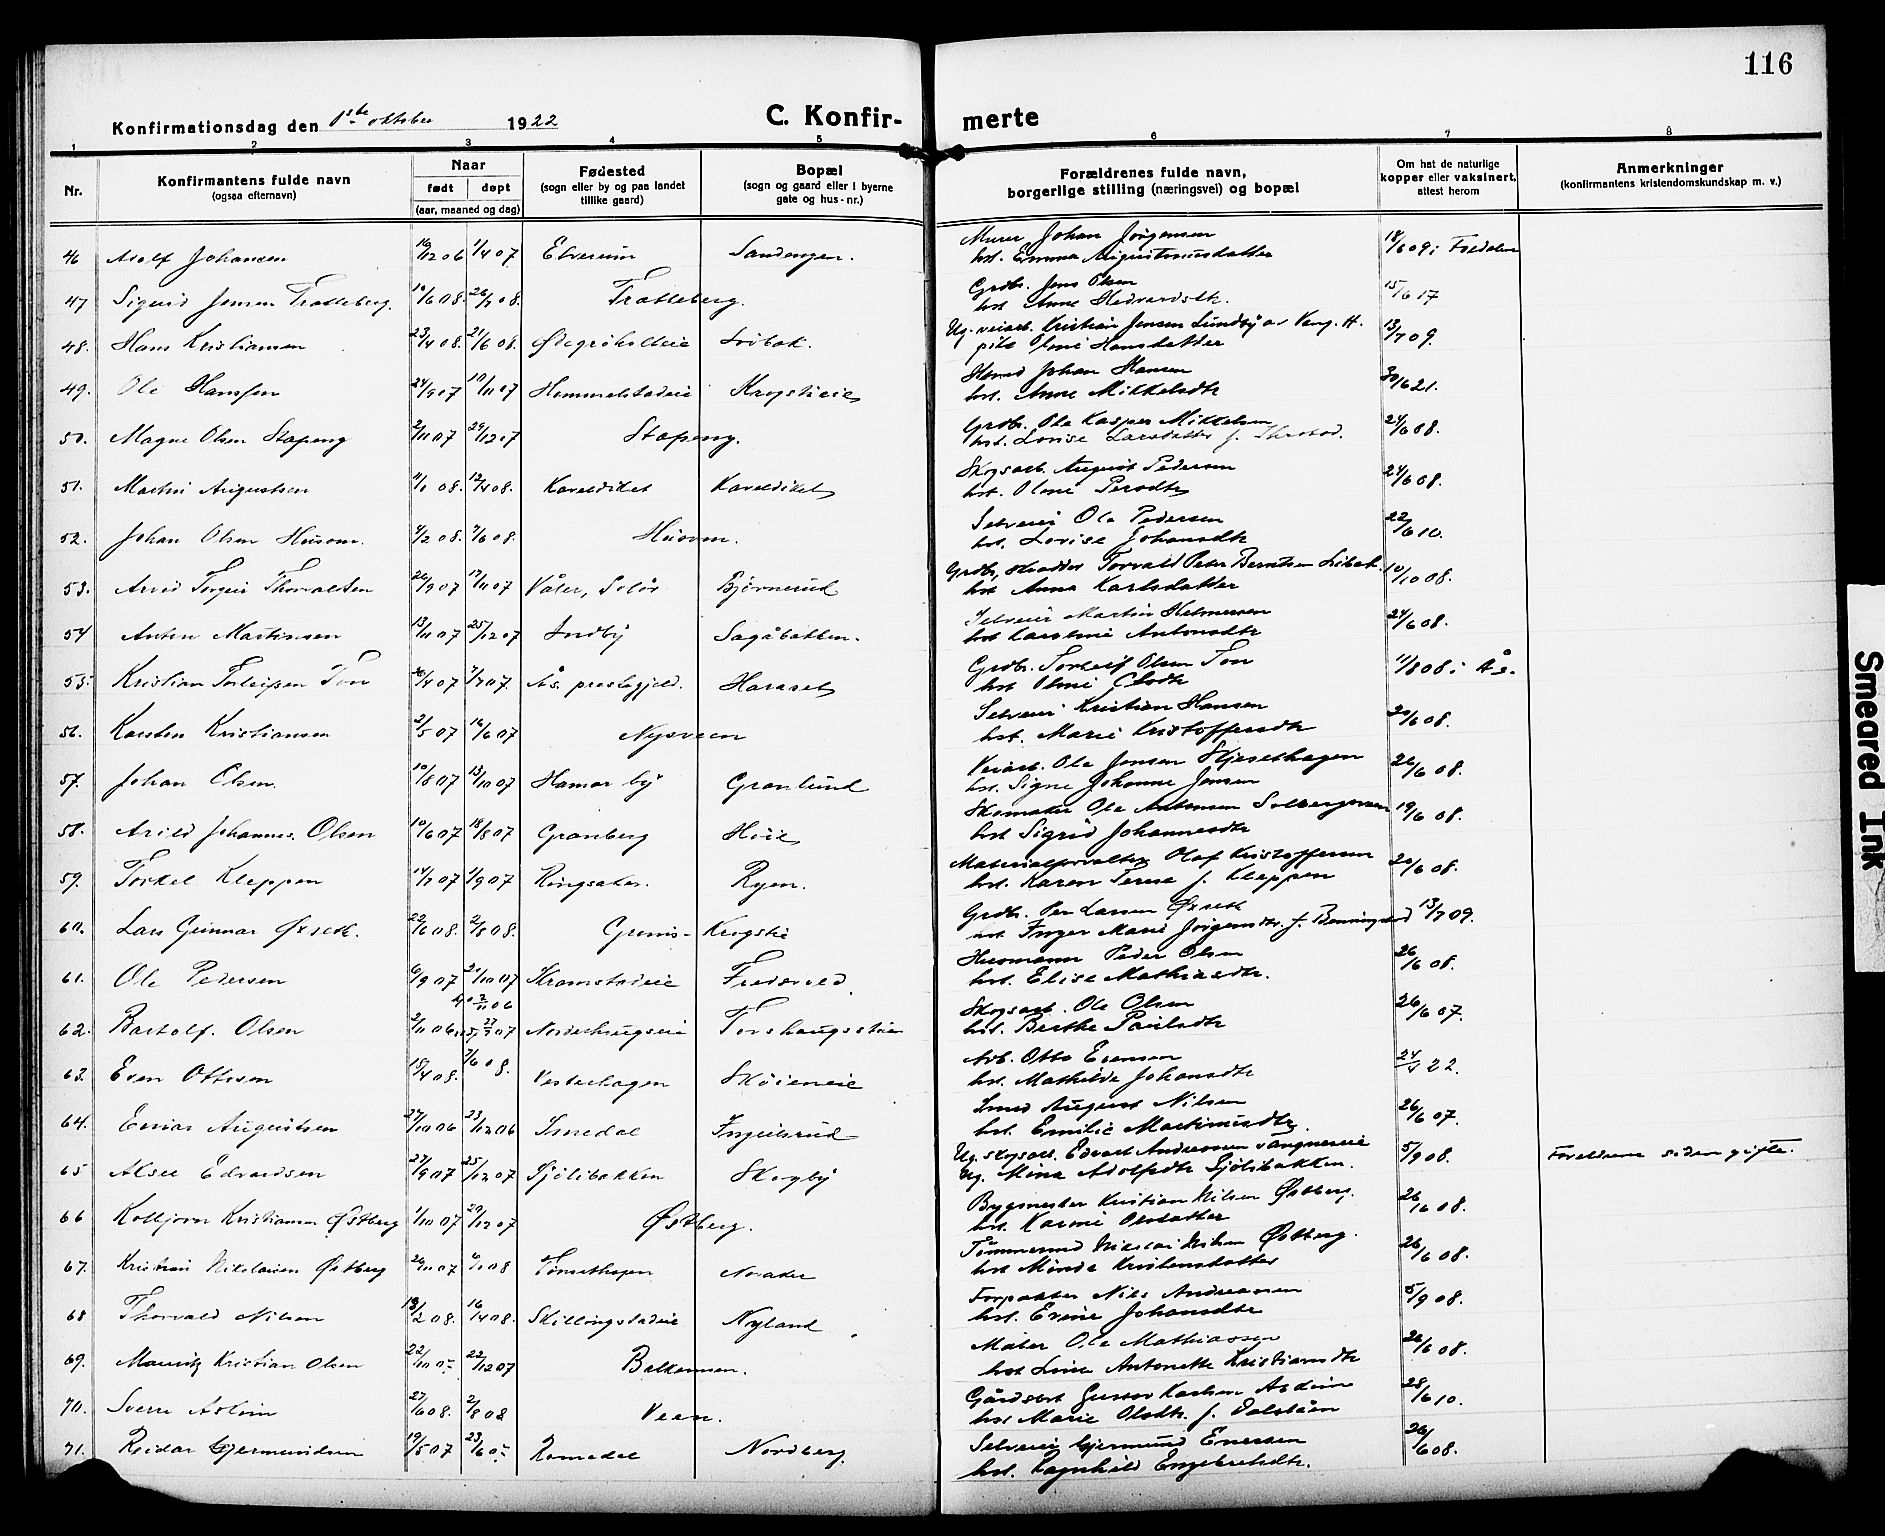 116
Konfirmationsdag den 1ste oktober 1922
C. Konfir- merte
1 2 3 4 5 6 7 8
Nr.
Konfirmantens fulde navn
(ogsaa efternavn)
Naar
født døpt
(aar, maaned og dag)
Fødested
(sogn eller by og paa landet
tillike gaard)
Bopæl
(sogn og gaard eller i byerne
gate og hus-nr.)
Forældrenes fulde navn,
borgerlige stilling (næringsvei) og bopæl
Om hat de naturlige
kopper eller vaksinert,
attest herom
Anmerkninger
(konfirmantens kristendomskundskap m. v.)
46 Adolf Johansen 16/12 06 1/4 07 Elverum Sandengen. Murer Johan Jørgensen
hst. Emma Augustinusdatter 18/6 09 i Foldalen
47 Sigurd Jensen Tratteberg. 10/6 08. 26/7 08. Tratteberg. Grdbr. Jens Olsen
hst. Anne 15/6 17
48. Hans Kristiansen 23/4 08. 21/6 08. Ug. veiarb. Kristian Jensen Lundby av Vang. H.
pike Oline Hansdatter 13/7 09.
49. Ole Hanssen 24/9 07 10/11 07 Hommelstadeie Krogstieie Johan Hansen
hst. Anne Mikkelsdtr 30/6 21.
50. Magne Olsen Stapeng 2/11 07 29/12 07 Stapeng. Grdbr. Ole Kasper Mikkelsen
hst. Lovise Larsdatter f. 24/6 08.
51. Martin Augustsen 11/1 08. 12/4 08. Kaveldiket Kaveldiket Skogsarb. August Pedersen
hst. Oline Persdtr 24/6 08.
52. Johan Olsen Husom. 4/2 08. 7/6 08. Husom. Selveier Ole Pedersen
hst. Lovise Johansdtr 22/6 10.
53. Arvid Torgeir Thorvaldsen 26/9 07 17/11 07 Våler, Solør Bjørnerud Grdbr, Torvald Peter Berntsen
hst Anna Karlsdatter 10/10 08.
54 Anton Martinsen 13/11 07 25/12 07 Indby Sagåbakken. Selveier Martin Helmersen
hst Karoline Antonsdtr 24/6 08.
55. Kristian Torleifsen Ton 7/7 07. Ås. prestegjeld. Haraset Grdbr. Torleif Olsen Ton
hst Oline Olsdtr 11/8 08 i Ås.
56. Karsten Kristiansen 2/5 07 16/6 07 Nysveen Selveier Kristian Hansen
hst. Marie Kristoffersdtr 20/6 08.
57. Johan Olsen. 10/8 07 13/10 07 Hamar by Granlund Veiarb. Ole Jensen Hjosethagen
hst. Signe Johanne Jensen 26/6 08.
58. Arild Johannes Olsen 10/6 07 18/8 07 Granberg Hoie Skomaker Ole Antonsen
hst Sigrid Johannesdtr 19/6 08.
59. Torkel Kleppen 14/7 07 1/9 07 Ringsaker. Ryen. Materialforvalter Olaf Kristoffersen
hst. Karen Terese f. Kleppen 20/6 08.
60. Lars Gunnar Øxseth. 22/6 08. 2/8 08. Grønis- Krogstie Grdbr. Per Larsen Øxseth
hst Inger Marie Jørgensdtr. f. Benningstad 13/7 09.
61. Ole Pedersen 6/9 07 20/10 07 Kramstadeie Fredsvold. Husmann Peder Olsen
hst. Elise Mathiasdtr. 26/6 08.
62. Bartolf. Olsen 2/11 06 Norderhaugseie Torshaugsstien Skogsarb. Ole Olsen
hst. Berthe Paulsdtr 26/6 07.
63. Even Ottosen 18/4 08. 7/6 08. Vesterhagen Skøieneie Arb. Otto Evensen
hst. Mathilde Johansdtr 24/5 22.
64. Einar Augustsen 27/10 06 23/12 06 Imedal Ingeilsrud Smed August Nilsen
hst. Emilie Martinusdtr. 26/6 07.
65 Aksel Edvardsen 27/9 07 25/12 07 Sjølibakken Skogby Ug. skogsarb. Edvart Andreassen Vangneseie
Ug. Mina Adolfsdtr Sjølibakken. 5/9 08. Foreldrene siden gifte.
66 Kolbjørn Kristiansen Østberg 1/10 07 29/12 07 Østberg. Bygmester Kristian Nilsen Østberg.
hst. Karine Olsdatter 26/6 08.
67. Kristian Nikolaisen Østberg 24/11 07 6/1 08 Tønsethagen Noraker Tømmermand Nikolai Nilsen Østberg.
hst Minda Kristensdatter 26/6 08.
68 Thorvald Nilsen 13/2 08. 16/4 08. Skillingstadeie Nyland Forpakter Nils Andreassen
hst. Evine Johansdtr 5/9 08.
69. Mauritz Kristian Olsen 22/12 07 Bakkemoen. Maler Ole Mathiassen
hst Line Antonette Kristiansdtr 26/6 08.
70. Sverre Asheim 27/6 08. 2/8 08 Veen. Gårdsbest Gustav Karlsen Asheim
hst Marie Olsdtr. f. Dalståen 28/6 10.
71. Reidar Gjermundsen 19/5 07 23/6 07 Romedal Nordberg. Selveier Gjermund Enersen
hst. Ragnhild Engebretsdtr. 26/6 08.
Smeared Ink